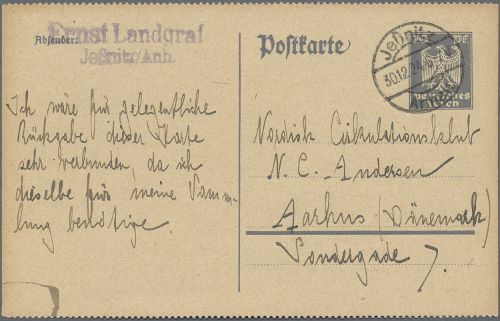 Absender: Ernst Landgraf
Jeßnitz/Anh.
Postkarte
Jeßnitz
30.12.24
Deutsches
Reich
Ich wäre für gelegentliche
Rückgabe dieser Karte
sehr verbunden, da ich
dieselbe für meine Samm-
lung benötige.
Nordisk Cirkulationsklub
N. C. Andersen
Aarhus (Dänemark)
Sondergade 7.